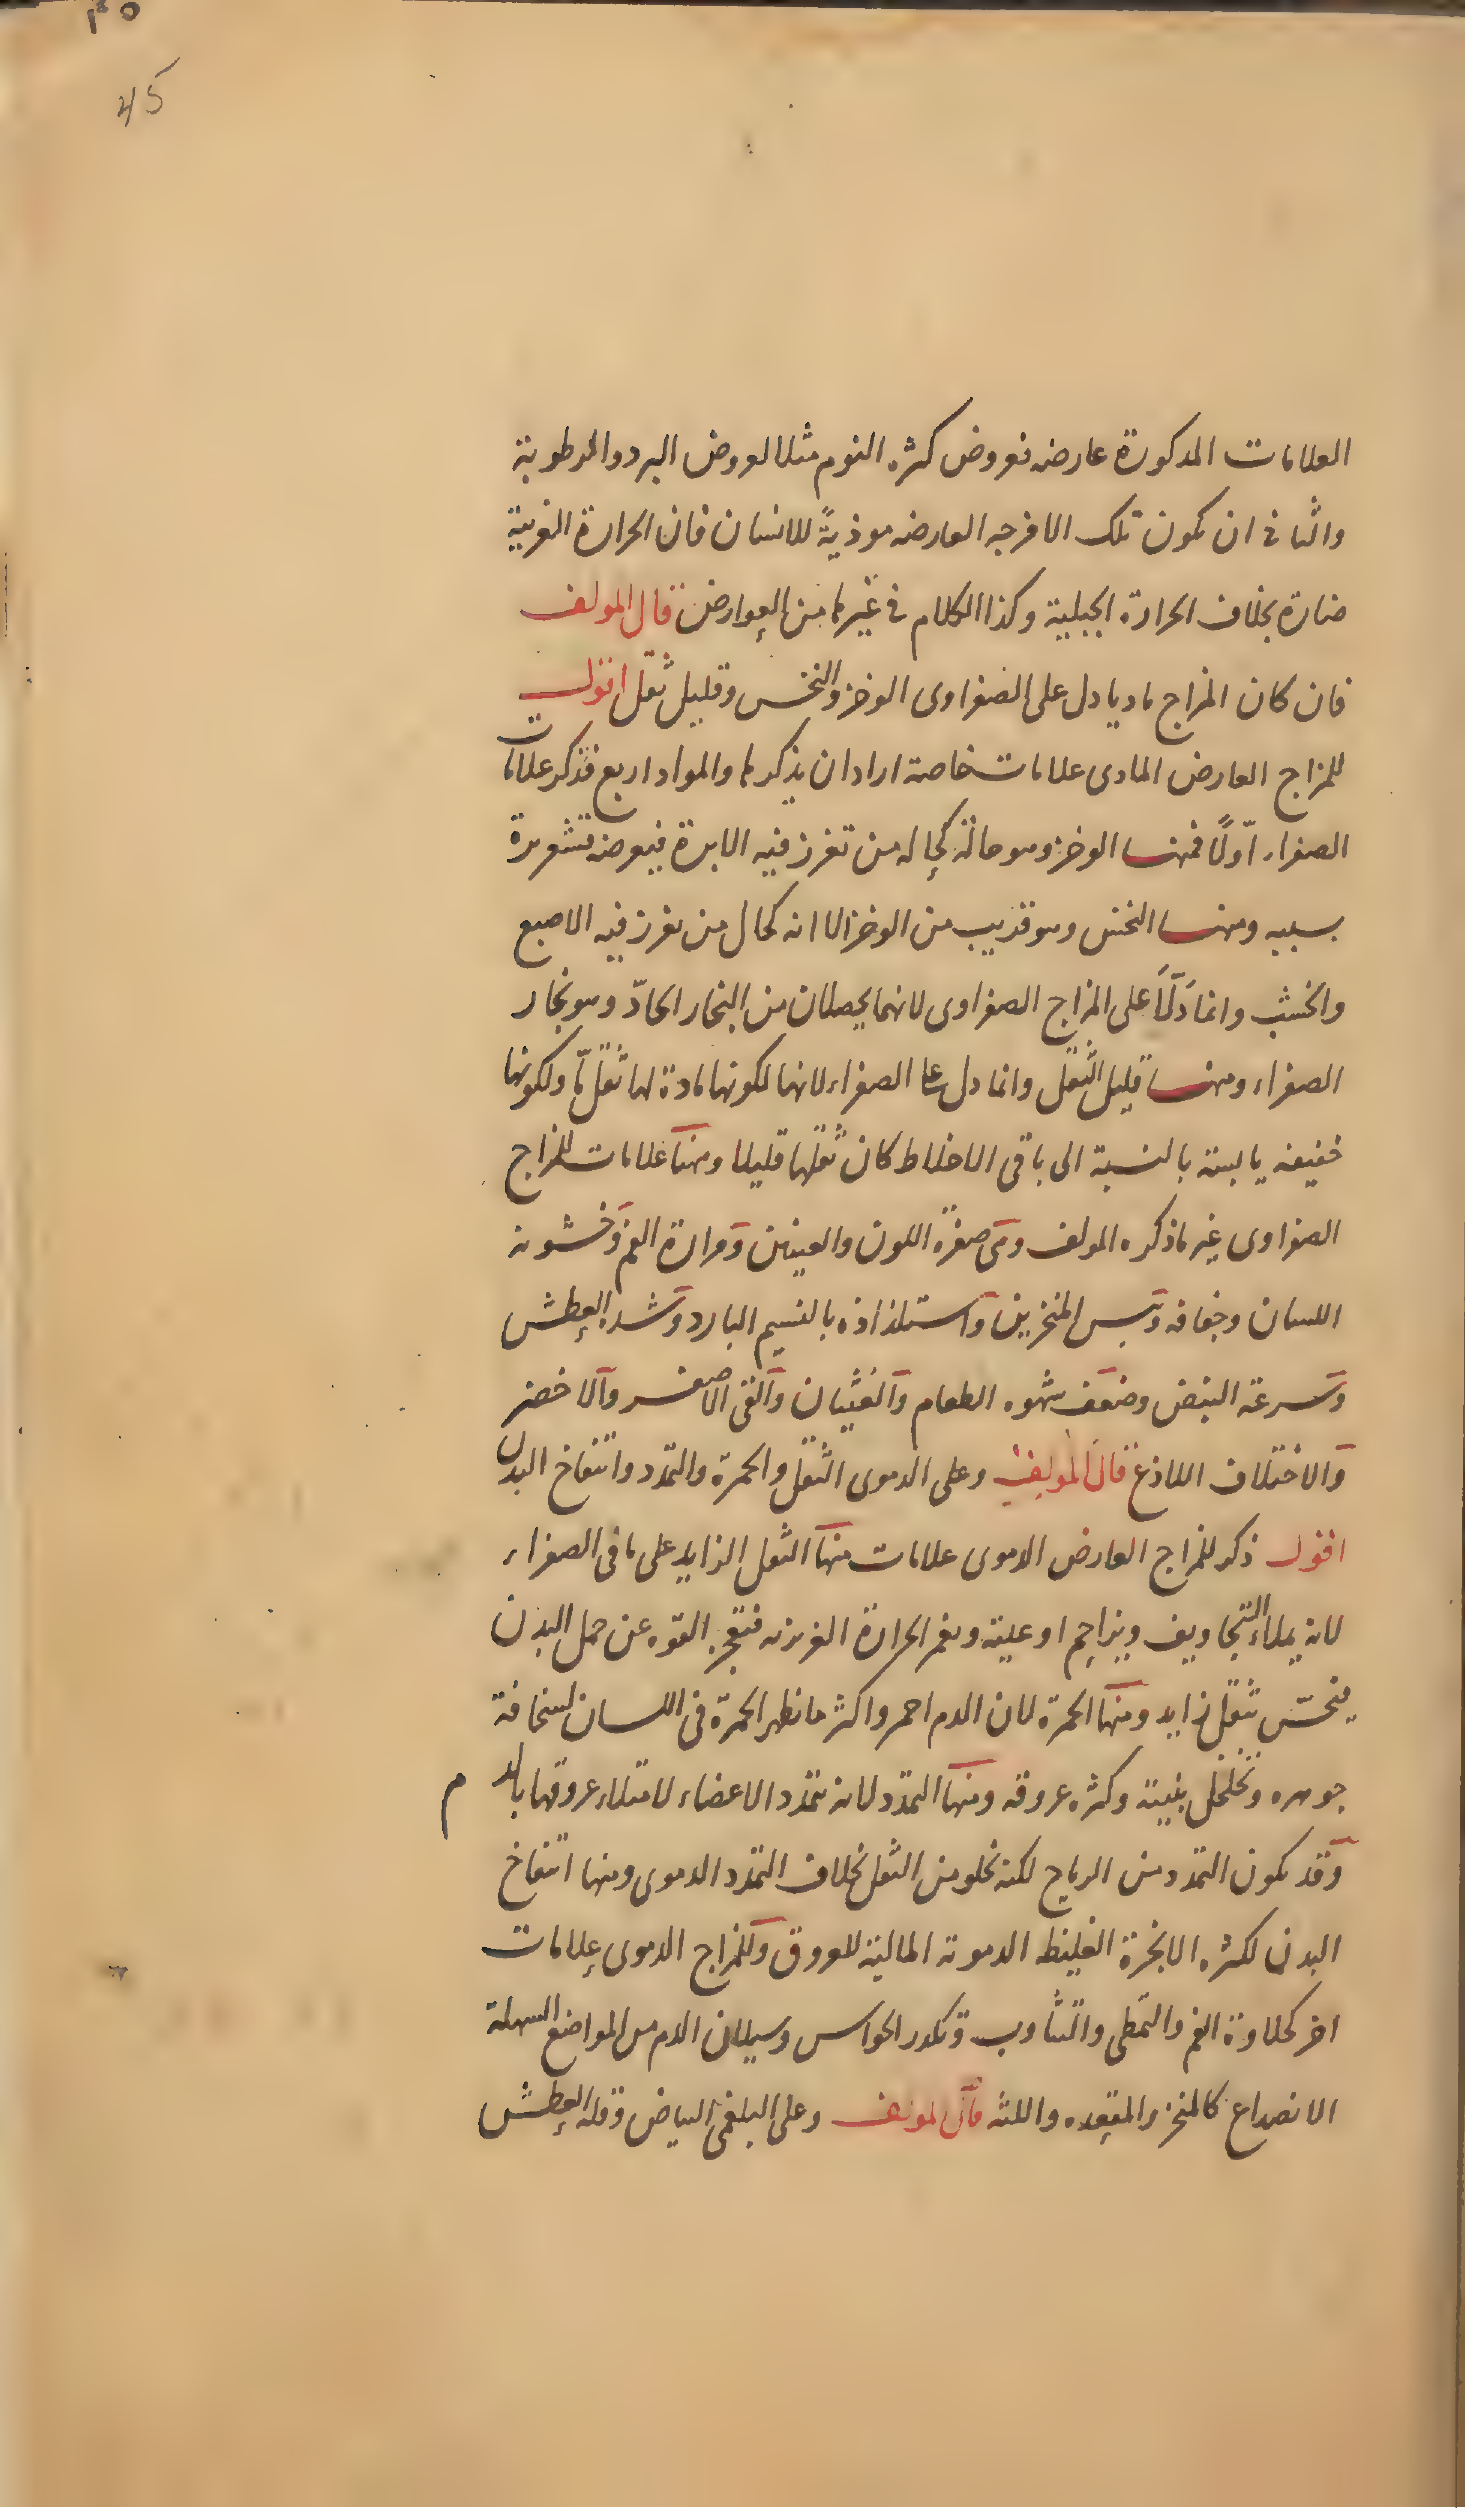 ٤٥
45
العلامات المذكورة عارضه فعروض كثره النوم مثلا لعروض البرد والرطوبة
والثانى ان يكون تلك الامزجه العارضه موذيةً للانسان فان الحرارة الغريبة
ضارة بخلاف الحرارة الجبلية وكذا الكلام فى غيرها من العوارض قال المولف
فان كان المزاج ماديا دل على الصفراوى الوخز والنخس وقليل ثقل اقول
للمزاج العارض المادى علامات خاصة اراد ان يذكرها والمواد اربع فذكر علامات
الصفراء اوّلًا فمنها الوخز وهو حالة كحاله من تغرز فيه الابرة فيعرضه قشعريرة
بسببه ومنها النخس وهو قريب من الوخز الا انه كحال من يغرز فيه الاصبع
والخشب وانما دَلَّا على المزاج الصفراوى لانهما يحصلان من البخار الحادّ وهو بخار
الصفراء ومنها قليل الثقل وانما دل على الصفراء لانها لكونها مادة لها ثقل مّا ولكونها
خفيفه يابسة بالنسبة الى باقى الاخلاط كان ثقلها قليلا ومنها علامات للمزاج
الصفراوى غير ما ذكره المولف وهى صفرة اللون والعينين ومرارة الفم وخشونه
اللسان وجفافه ويبس المنخرين واستلذاذه بالنسيم البارد وشده العطش
وسرعة النبض وضعف شهوه الطعام والغثيان والقى الاصفر والاخضر
والاختلاف اللاذع قال المولف وعلى الدموى الثقل والحمرة والتمدد وانتفاخ البدن
اقول ذكر للمزاج العارض الدموى علامات منها الثقل الزايد على ما فى الصفراء
لانه يملاء التجاويف ويزاحم اوعية ويغمر الحرارة الغريزيه فتعجز القوه عن حمل البدن
فيحسّ بثقل زايد ومنها الحمرة لان الدم احمر واكثر ما يظهر الحمرة فى اللسان لسخافة
جوهره وتخلخل بنيته وكثره عروقه ومنها التمدد لانه يتمدد الاعضاء لامتلاء عروقها بالدم
وقد يكون التمدد من الرياح لكنه يخلو من الثقل بخلاف التمدد الدموى ومنها انتفاخ
البدن لكثره الابخرة الغليظه الدمويه المالية للعروق وللمزاج الدموى علامات
اخر كحلاوة الفم والتمطى والتثاوب وتكدر الحواس وسيلان الدم من المواضع السهلة
الانصداع كالمنخر والمقعده واللثه قال المولف وعلى البلغمى البياض وقله العطش